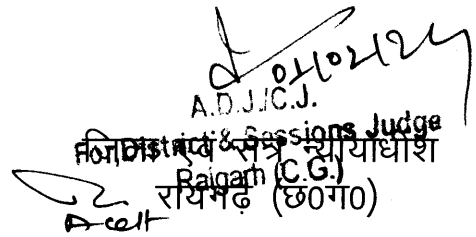 01/02/24
A.D.J./C.J.
For, District & Sessions Judge
जिला एवं सत्र न्यायाधीश
Raigarh (C.G.)
रायगढ़ (छ0ग0)